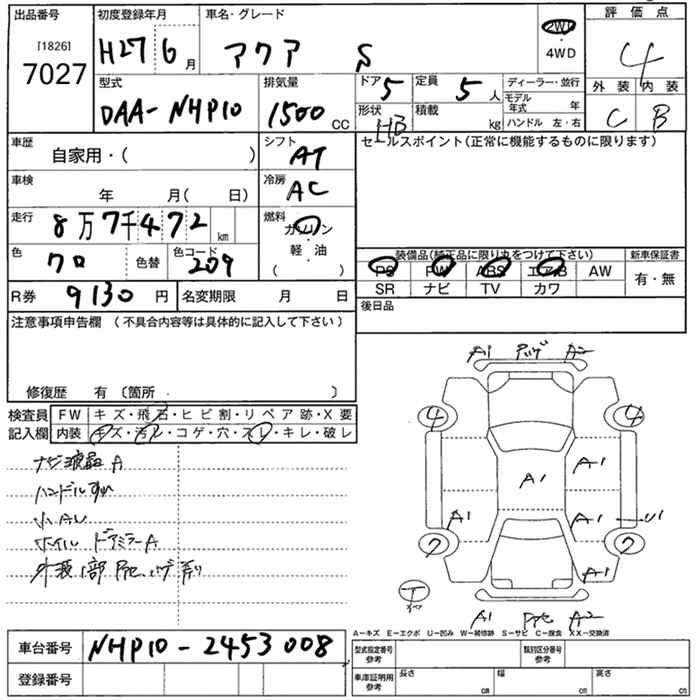 出品番号 初度登録年月 車名・グレード 評価点
[1826] 7027 H27 6月 アクア S 2WD ・ 4WD 4
型式 排気量 ドア 5 定員 5人 ディーラー・並行 外装 内装
DAA-NHP10 1500 CC 形状 HB 積載 kg モデル年式 年 C B
ハンドル 左・右
車歴 シフト セールスポイント(正常に機能するものに限ります)
自家用・( ) AT
車検 年 月( 日) 冷房 AC
走行 8万7千472 km 燃料 ガソリン・軽・油 ( )
色 クロ 色替 色コード 209
装備品(純正品に限り丸をつけて下さい) 新車保証書
PS PW ABS エアB AW 有・無
SR ナビ TV カワ
R券 9130円 名変期限 月 日 後日品
注意事項申告欄 (不具合内容等は具体的に記入して下さい)
修復歴 有〔箇所 〕
検査員 FW キズ・飛石・ヒビ割・リペア跡・X要
記入欄 内装 キズ・汚レ・コゲ・穴・スレ・キレ・破レ
ナビ液晶A
ハンドルすれ
小AU
ホイル ドアミラーA
外装1部
A1 A2
4 4
A1 A1
A1 A1 U1
7 7
A1
T
A1 A2
A-キズ E-エクボ U-凹み W-補修跡 S-サビ C-腐食 XX-交換済
車台番号 NHP10-2453008
登録番号
型式指定番号 参考 類別区分番号 参考
車庫証明用 参考 長さ cm 幅 cm 高さ cm